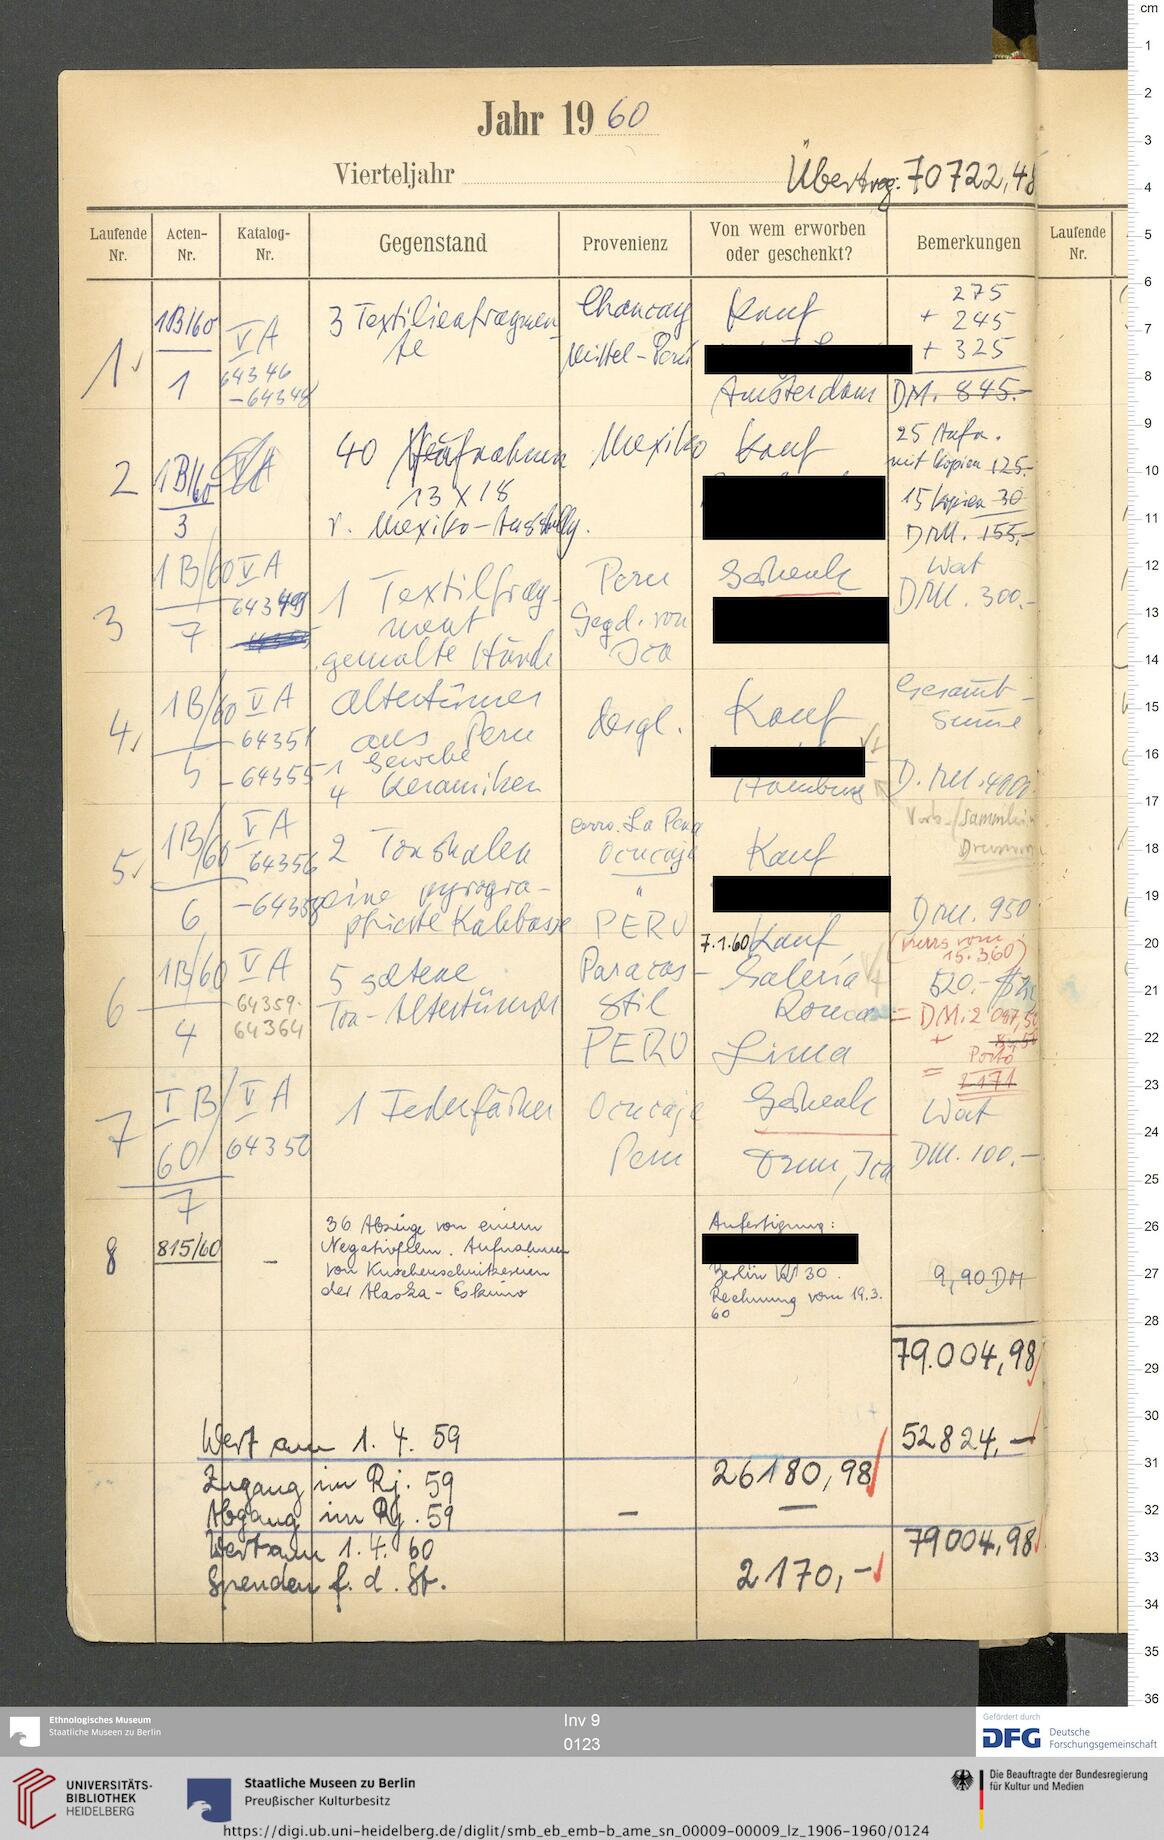 Jahr 19 60
Vierteljahr
Übertrag: 70722,48
Laufende Nr.
Acten-Nr.
Katalog-Nr.
Gegenstand
Provenienz
Von wem erworben oder geschenkt?
Bemerkungen
Laufende Nr.
1
1B/60
1
V A
64346
-64348
3 Textilienfragmen
te
Chancay
Mittel-Peru
Kauf
Amsterdam
275
+ 245
+ 325
DM. 845.-
2
1B/60
3
V A
40 Aufnahmen
13 x 18
v. Mexiko-Ausstellg.
Mexiko
Kauf
25 Aufn.
mit Kopien 125.-
15 Kopien 30
DM. 155,-
3
1B/60
7
V A
64349
1 Textilfrag-
ment
gemalte Hände
Peru
Gegd. von
Ica
Geschenk
Wert
DM. 300.-
4
1B/60
5
V A
64351
-64355
Altertümer
aus Peru
1 Gewebe
4 Keramiken
desgl.
Kauf
Hamburg
Gesamt-
Summe
D.M.
5
1B/60
6
V A
64356
-64358
2 Tonschalen
eine pyrogra-
phierte Kalebasse
Cerro. La Pena
Ocucaje
"
PERU
Kauf
DM. 950
6
1B/60
4
V A
64359-
64364
5 seltene
Ton-Altertümer
Paracas-
Stil
PERU
7.1.60 Kauf
Galeria
Roma
Lima
(Kurs vom
15.3.60)
520.-
= DM. 2
+
Porto
= 2171
7
I B/60
7
V A
64350
1 Federfächer
Ocucaje
Peru
Geschenk
Ica
Wert
DM. 100.-
8
815/60
-
36 Abzüge von einem
Negativfilm. Aufnahmen
von Knochenschnitzereien
der Alaska-Eskimo
Anfertigung:
Berlin W 30
Rechnung vom 19.3.
60
9,90 DM
79.004,98
Wert am 1. 4. 59
52824,-
Zugang im Rj. 59
26180,98
Abgang im Rj. 59
-
-
Wert am 1. 4. 60
79004,98
Spenden f. d. St.
2170,-
cm
1
2
3
4
5
6
7
8
9
10
11
12
13
14
15
16
17
18
19
20
21
22
23
24
25
26
27
28
29
30
31
32
33
34
35
36
Ethnologisches Museum
Staatliche Museen zu Berlin
Inv 9
0123
Gefördert durch
DFG Deutsche
Forschungsgemeinschaft
UNIVERSITÄTS-
BIBLIOTHEK
HEIDELBERG
Staatliche Museen zu Berlin
Preußischer Kulturbesitz
Die Beauftragte der Bundesregierung
für Kultur und Medien
https://digi.ub.uni-heidelberg.de/diglit/smb_eb_emb-b_ame_sn_00009-00009_lz_1906-1960/0124